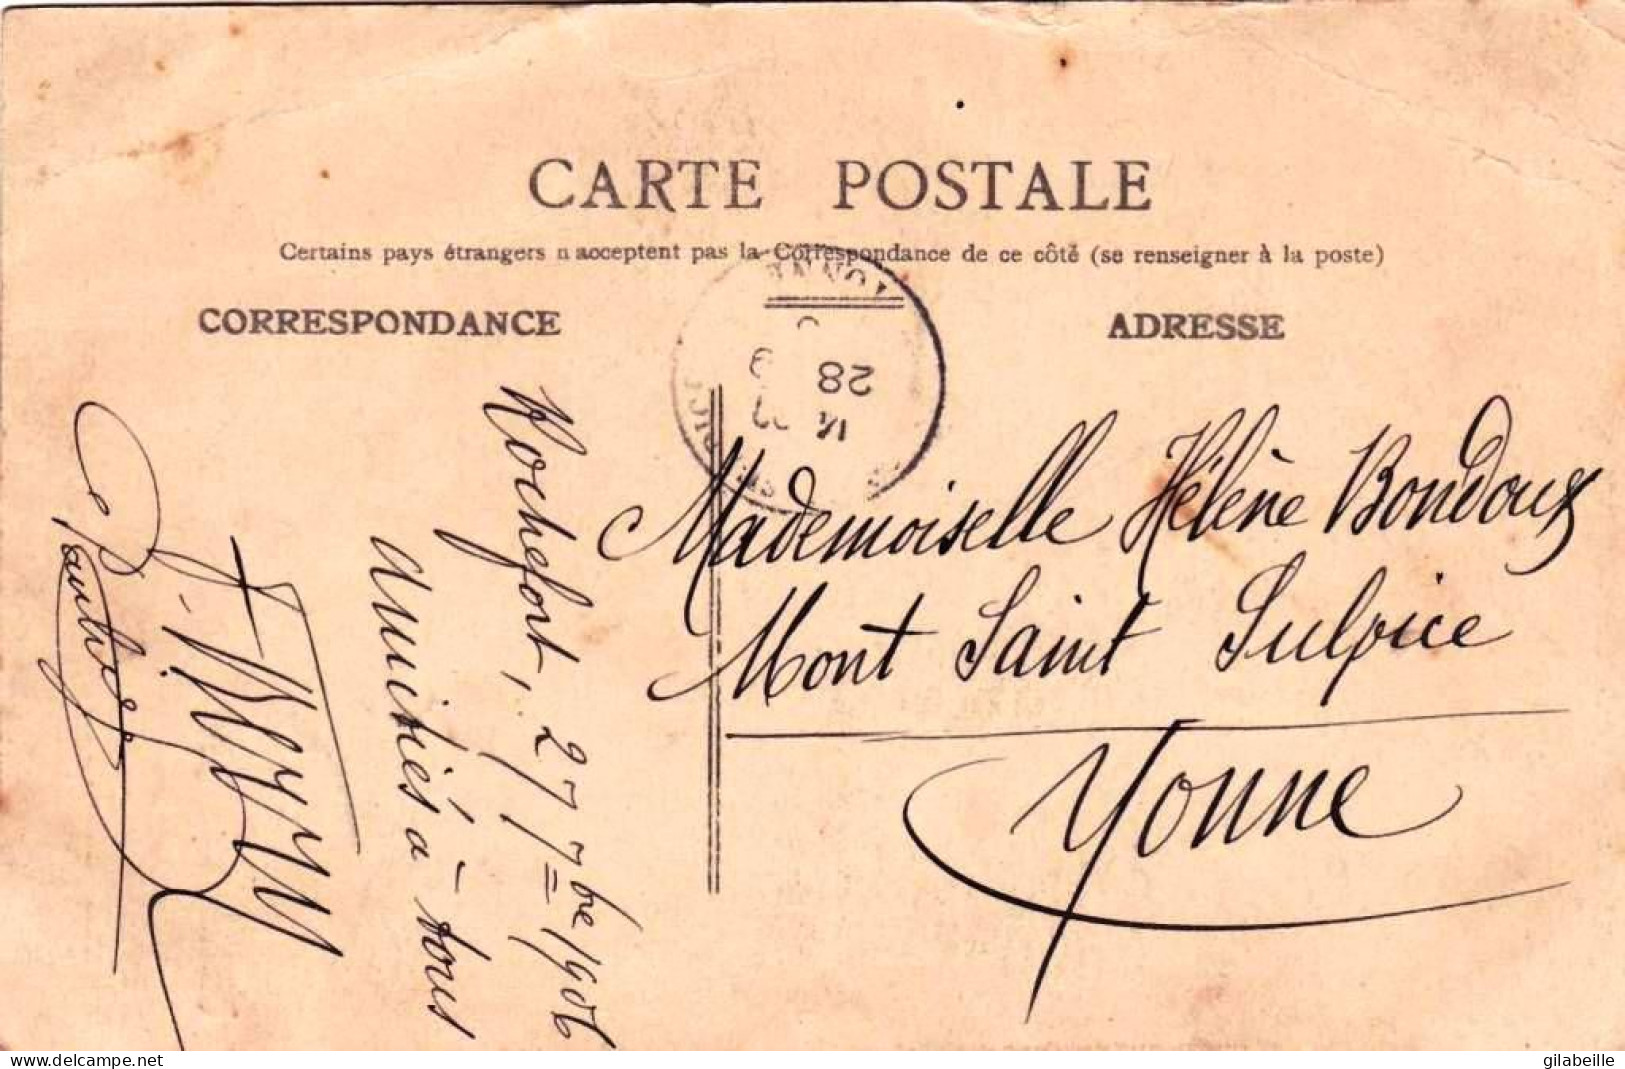 CARTE POSTALE
Certains pays étrangers n'acceptent pas la Correspondance de ce côté (se renseigner à la poste)
CORRESPONDANCE
ADRESSE
28 9
Rochefort, 27 7bre 1906
Amitiés à tous
Mademoiselle Hélène Bondoux
Mont Saint Sulpice
Yonne
www.delcampe.net
gilabeille